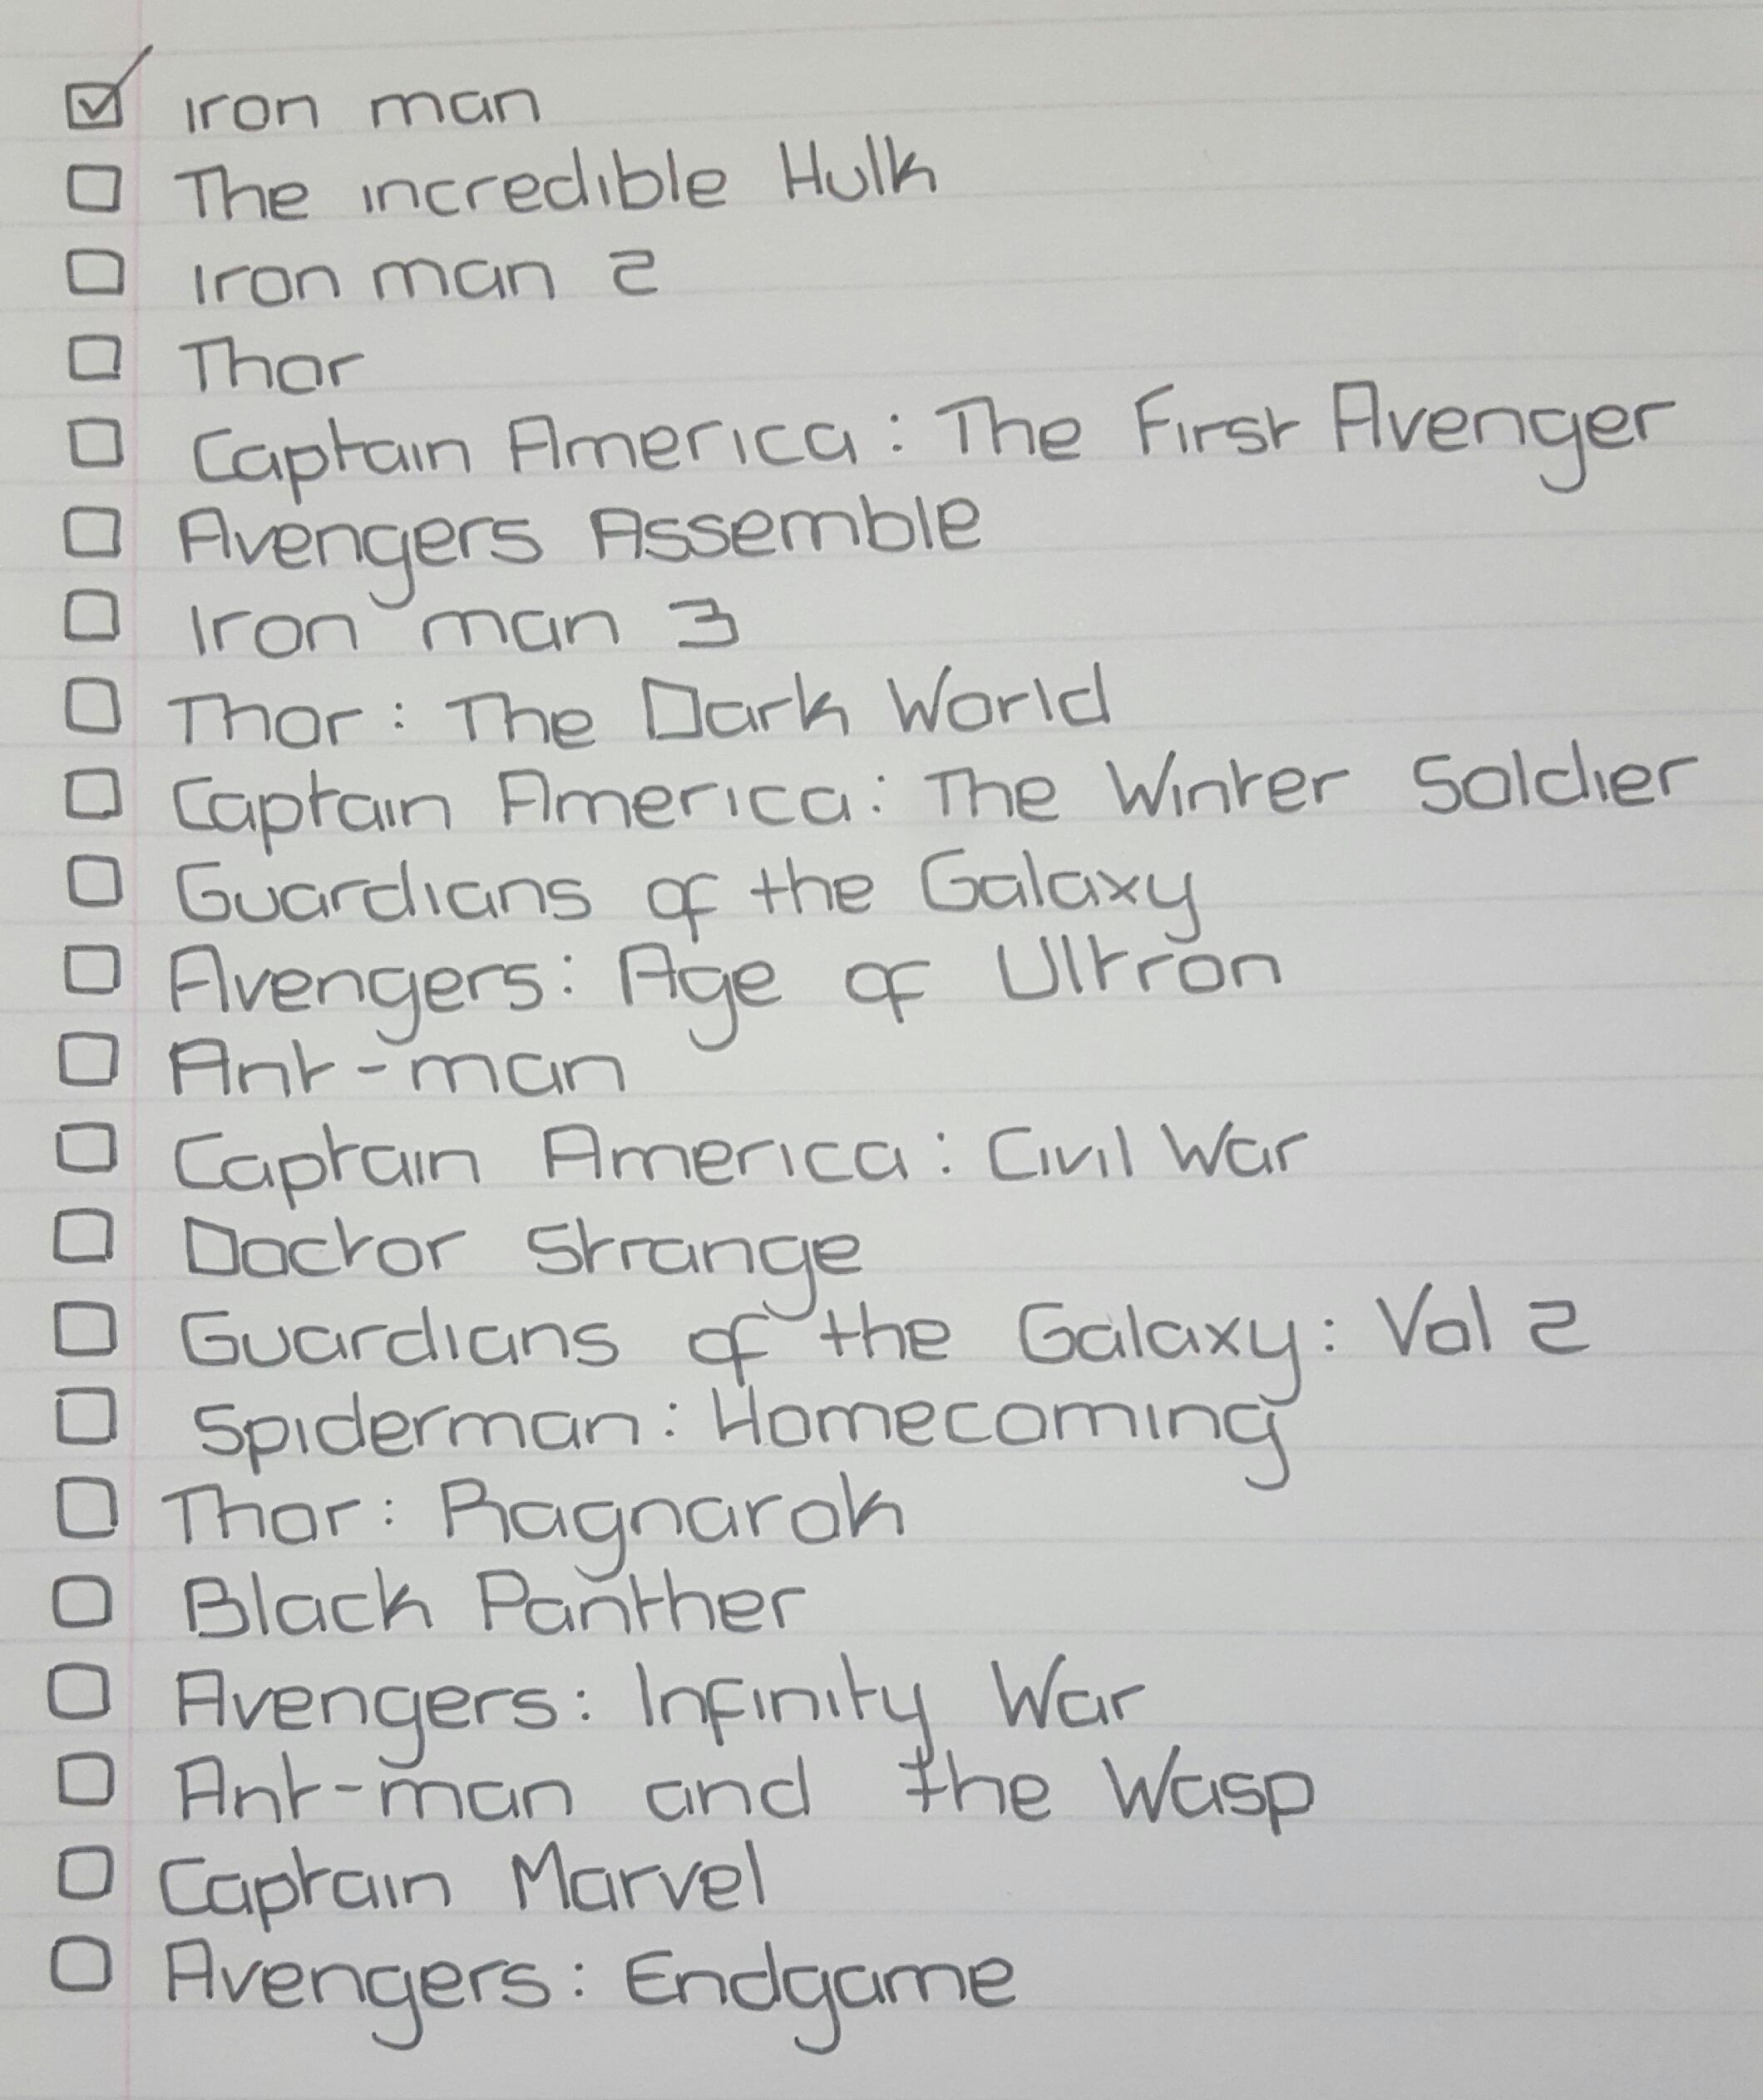 ☑ Iron man
☐ The incredible Hulk
☐ Iron man 2
☐ Thor
☐ Captain America: The First Avenger
☐ Avengers Assemble
☐ Iron man 3
☐ Thor: The Dark World
☐ Captain America: The Winter Soldier
☐ Guardians of the Galaxy
☐ Avengers: Age of Ultron
☐ Ant-man
☐ Captain America: Civil War
☐ Doctor Strange
☐ Guardians of the Galaxy: Vol 2
☐ Spiderman: Homecoming
☐ Thor: Ragnarok
☐ Black Panther
☐ Avengers: Infinity War
☐ Ant-man and the Wasp
☐ Captain Marvel
☐ Avengers: Endgame